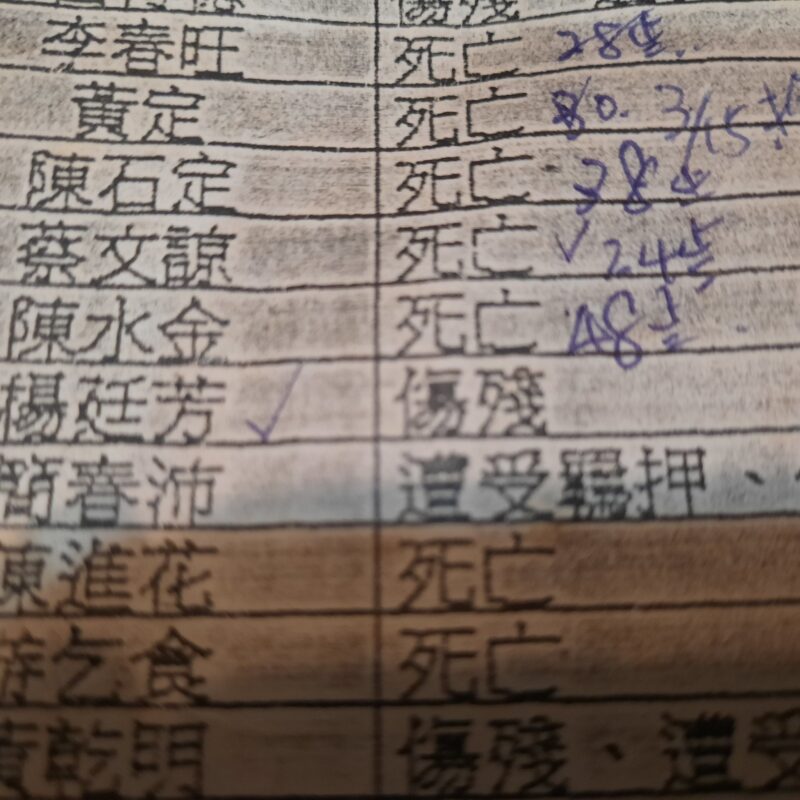 傷殘
李春旺 死亡 28歲
黃定 死亡 80. 3/15
陳石定 死亡 38歲
蔡文諒 死亡 ✓ 24歲
陳水金 死亡 48歲
楊廷芳 ✓ 傷殘
簡春沛 遭受羈押、
陳進花 死亡
游乞食 死亡
黃乾明 傷殘、遭受